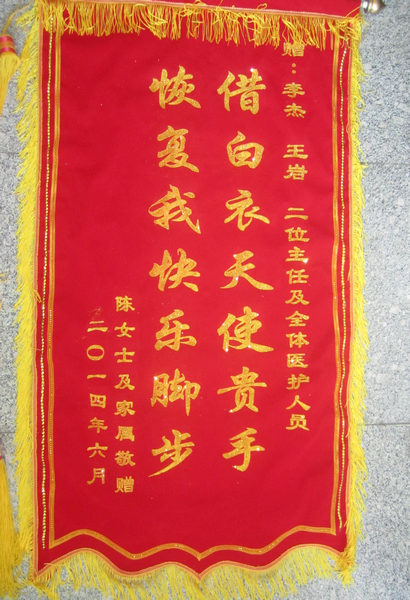 赠：李杰 王岩 二位主任及全体医护人员
借白衣天使贵手
恢复我快乐脚步
陈女士及家属敬赠
二〇一四年六月